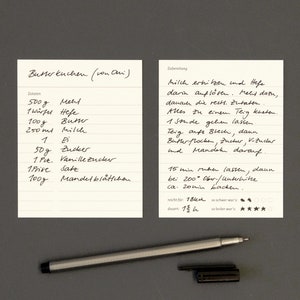 Butterkuchen (von Omi)
Zutaten
500g Mehl
1 Würfel Hefe
100g Butter
250ml Milch
1 Ei
50g Zucker
1 Pck. Vanillezucker
1 Prise Salz
100g Mandelblättchen
Zubereitung
Milch erhitzen und Hefe
darin auflösen. Mehl dazu,
danach die restl. Zutaten
Alles zu einem Teig kneten
1 Stunde gehen lassen
Teig aufs Blech, dann
Butterflocken, Zucker, V.Zucker
und Mandeln darauf
15 min ruhen lassen, dann
bei 200° Ober/Unterhitze
ca. 20min backen
reicht für: 1 Blech so schwer war's:
dauert: so lecker war's: